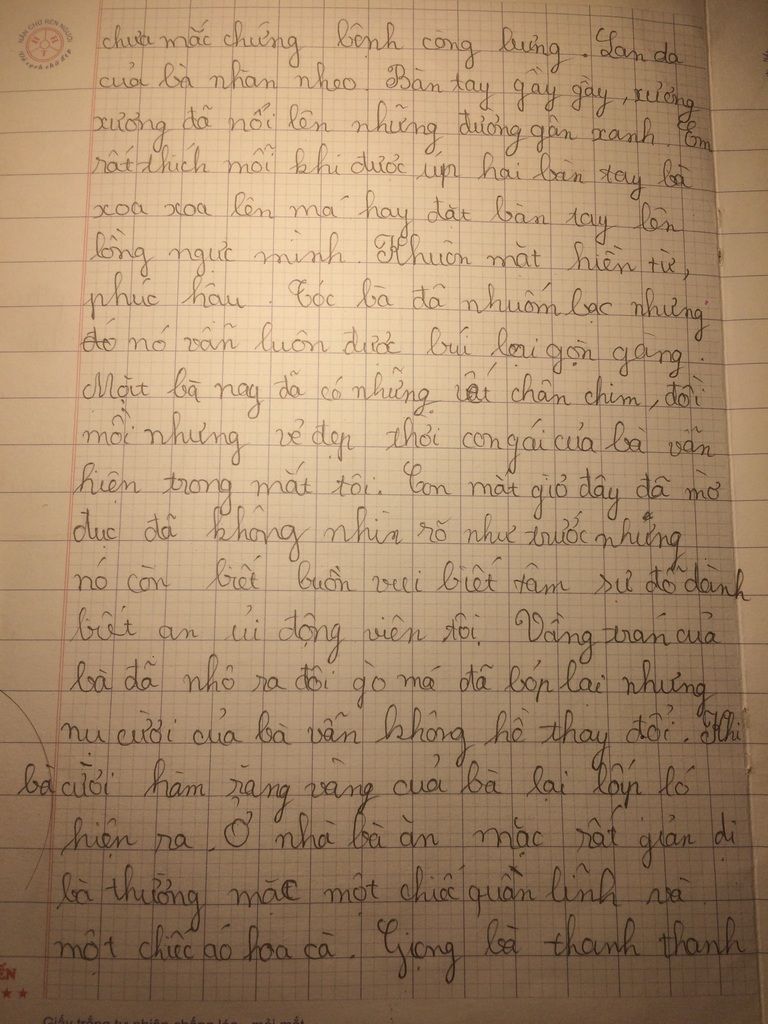 chưa mắc chứng bệnh còng lưng. Làn da
của bà nhăn nheo. Bàn tay gầy gầy, xương
xương đã nổi lên những đường gân xanh. Em
rất thích mỗi khi được úp hai bàn tay bà
xoa xoa lên má hay đặt bàn tay lên
lồng ngực mình. Khuôn mặt hiền từ,
phúc hậu. Tóc bà đã nhuốm bạc nhưng
nó vẫn luôn được búi lại gọn gàng.
Mặt bà nay đã có những vết chân chim, đồi
mồi nhưng vẻ đẹp thời con gái của bà vẫn
hiện trong mắt tôi. Con mắt giờ đây đã mờ
đục đã không nhìn rõ như trước nhưng
nó còn biết buồn vui biết tâm sự dỗ dành
biết an ủi động viên tôi. Vầng trán của
bà đã nhô ra đôi gò má đã bóp lại nhưng
nụ cười của bà vẫn không hề thay đổi. Khi
bà cười hàm răng vàng của bà lại lấp ló
hiện ra. Ở nhà bà ăn mặc rất giản dị
bà thường mặc một chiếc quần lình và
một chiếc áo hoa cà. Giọng bà thanh thanh
NÉT CHỮ RÈN NGƯỜI
ẾN
Giấy trắng tự nhiên chống lóa - mỏi mắt